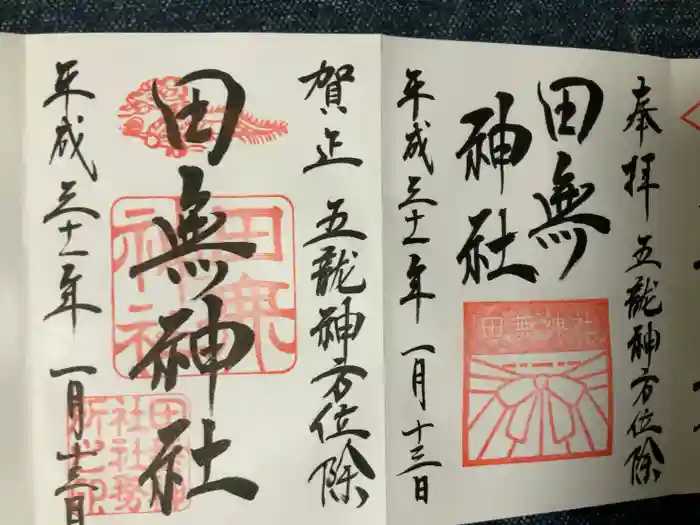 奉拝 五龍神方位除
田無
神社
田無神社
平成三十一年 一月 十三日
賀正 五龍神方位除
田無神社
田無
神社
平成三十一年 一月 十三日